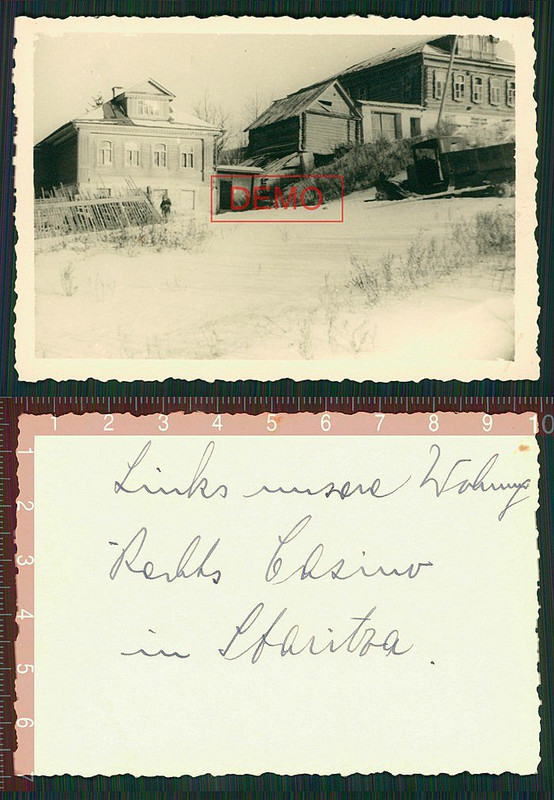 DEMO
1 2 3 4 5 6 7 8 9 10
1
2
3
4
5
6
7
Links unsere Wohnung
Rechts Casino
in Staritza.